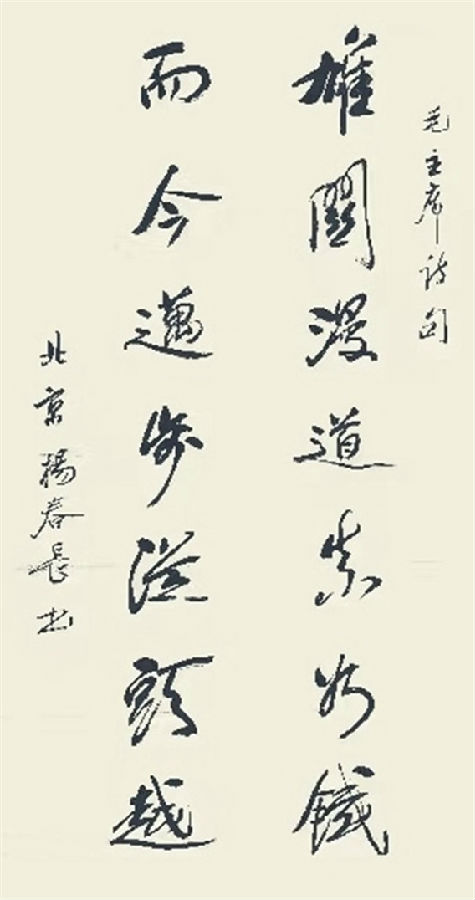 毛主席诗句
雄關漫道真如鐵
而今邁步從頭越
北京楊春長书